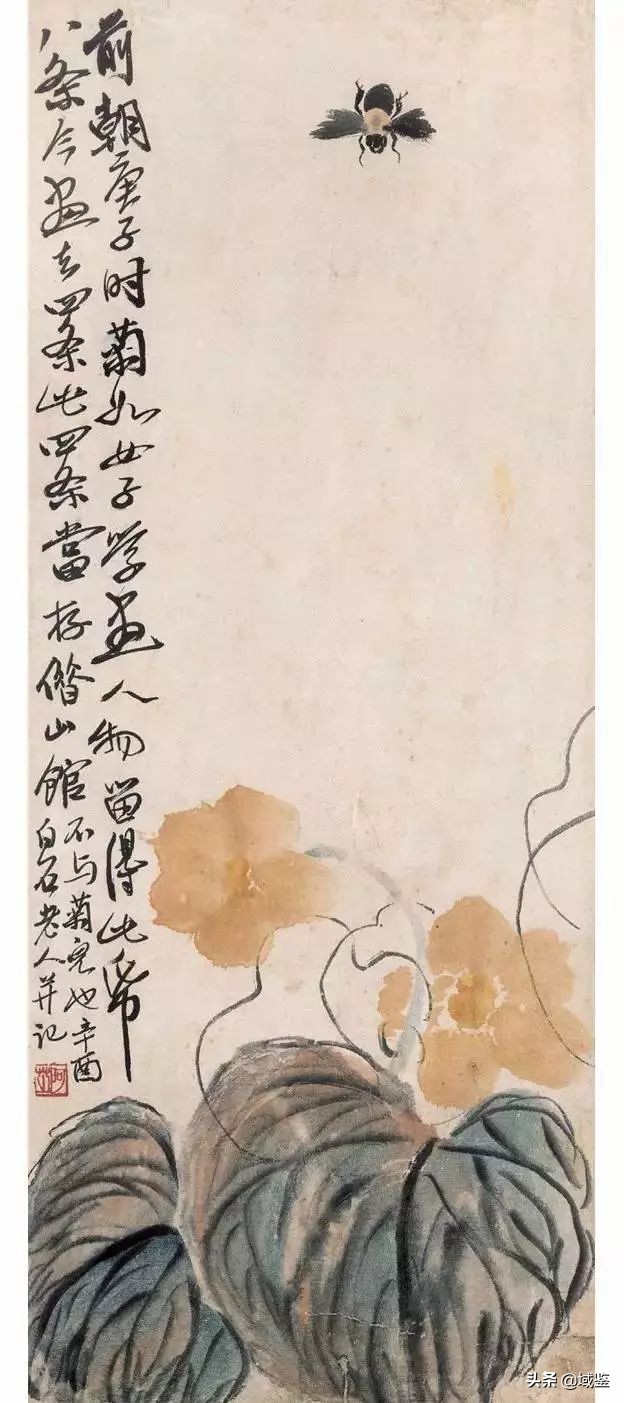 前朝庚子时菊如女子学画人物留得此帋
八条今画去四条此四条當存借山館
不与菊兒也辛酉
白石老人并记
阿芝
头条 @域鉴